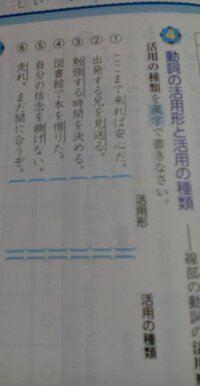 4 動詞の活用形と活用の種類
線部の動詞の活
活用の種類を漢字で書きなさい。
活用形
活用の種類
① ここまで来れば安心だ。
② 出発する兄を見送る。
③ 勉強する時間を決める。
④ 図書館で本を借りた。
⑤ 自分の信念を曲げない。
⑥ 走れ、まだ間に合うぞ。